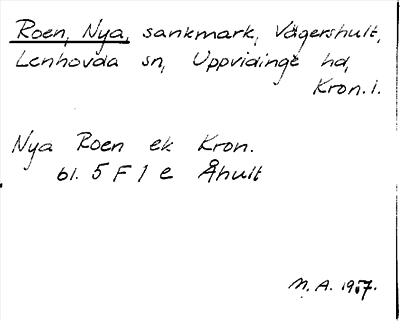 Roen, Nya, sankmark, Vägershult,
Lenhovda sn, Uppvidinge hd,
Kron. l.
Nya Roen ek Kron.
bl. 5 F 1 e Åhult
M. A. 1957.